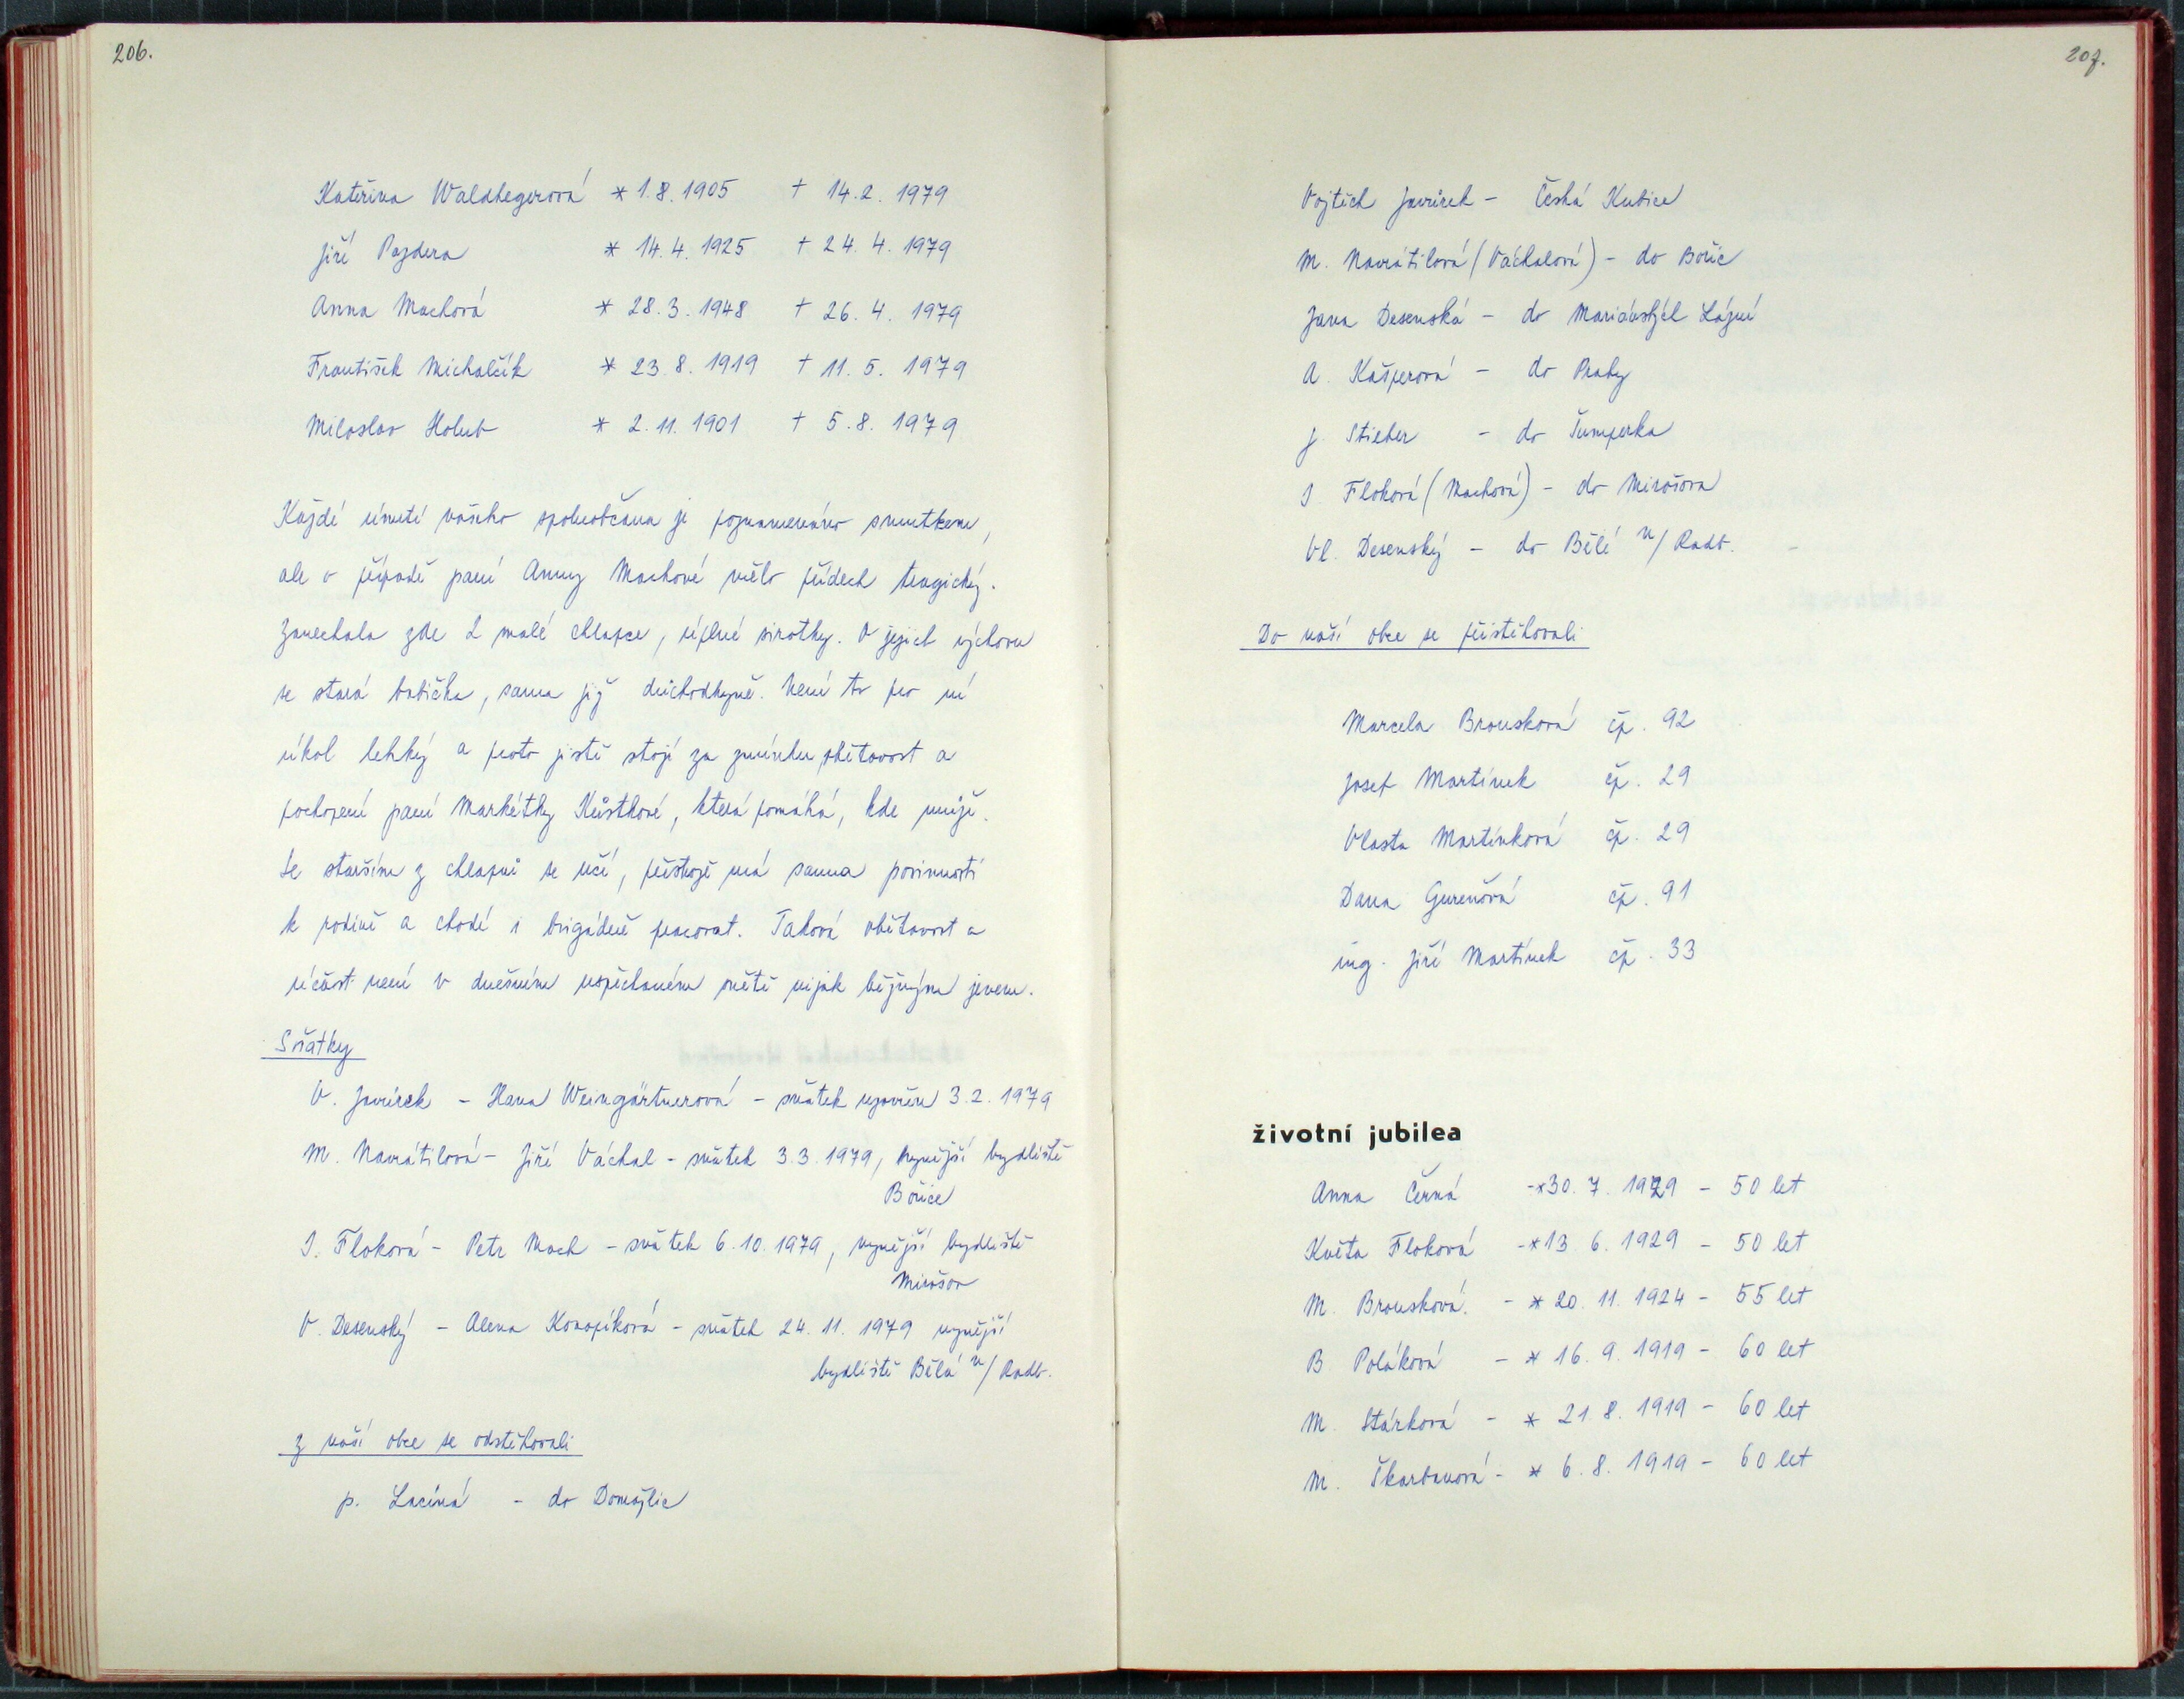 206.
Kateřina Waldhegerová * 1.8.1905 † 14.2. 1979
Jiří Pajdera * 14.4. 1925 † 24. 4. 1979
Anna Machová * 28.3. 1948 † 26. 4. 1979
František Michalčík * 23. 8. 1919 † 11. 5. 1979
Miloslav Holub * 2. 11. 1901 † 5. 8. 1979
Každé úmrtí našeho spoluobčana je poznamenáno smutkem,
ale v případě paní Anny Machové mělo přídech tragický.
Zanechala zde 2 malé chlapce, úplné sirotky. O jejich výchovu
se stará babička, sama již důchodkyně. Není to pro ní
úkol lehký a proto jistě stojí za zmínku obětavost a
pochopení paní Markétky Kůstkové, která pomáhá, kde může.
Se starším z chlapců se učí, přestože má sama povinnosti
k rodině a chodí i brigádně pracovat. Taková obětavost a
účast není v dnešním uspěchaném světě nijak běžným jevem.
Sňatky
V. Javůrek - Hana Weingärtnerová - sňatek uzavřen 3.2. 1979
M. Navrátilová - Jiří Váchal - sňatek 3.3.1979, nynější bydliště
Bořice
I. Floková - Petr Mach - sňatek 6.10.1979, nynější bydliště
Mirošov
V. Desenský - Alena Konopíková - sňatek 24. 11. 1979 nynější
bydliště Bělá n/Radb.
Z naší obce se odstěhovali
p. Laciná - do Domažlic
207.
Vojtěch Javůrek - Česká Kubice
M. Navrátilová (Váchalová) - do Bořic
Jana Desenská - do Mariánských Lázní
A. Kašperová - do Prahy
J. Stieber - do Šumperka
I. Floková (Machová) - do Mirošova
Vl. Desenský - do Bělé n/Radb.
Do naší obce se přistěhovali
Marcela Brousková čp. 92
Josef Martínek čp. 29
Vlasta Martínková čp. 29
Dana Gureňová čp. 91
ing. Jiří Martínek čp. 33
životní jubilea
Anna Černá -*30. 7. 1929 - 50 let
Květa Floková -*13. 6. 1929 - 50 let
M. Brousková. - * 20. 11. 1924 - 55 let
B. Poláková - * 16. 9. 1919 - 60 let
M. Stárková - * 21. 8. 1919 - 60 let
M. Škarbanová - * 6. 8. 1919 - 60 let